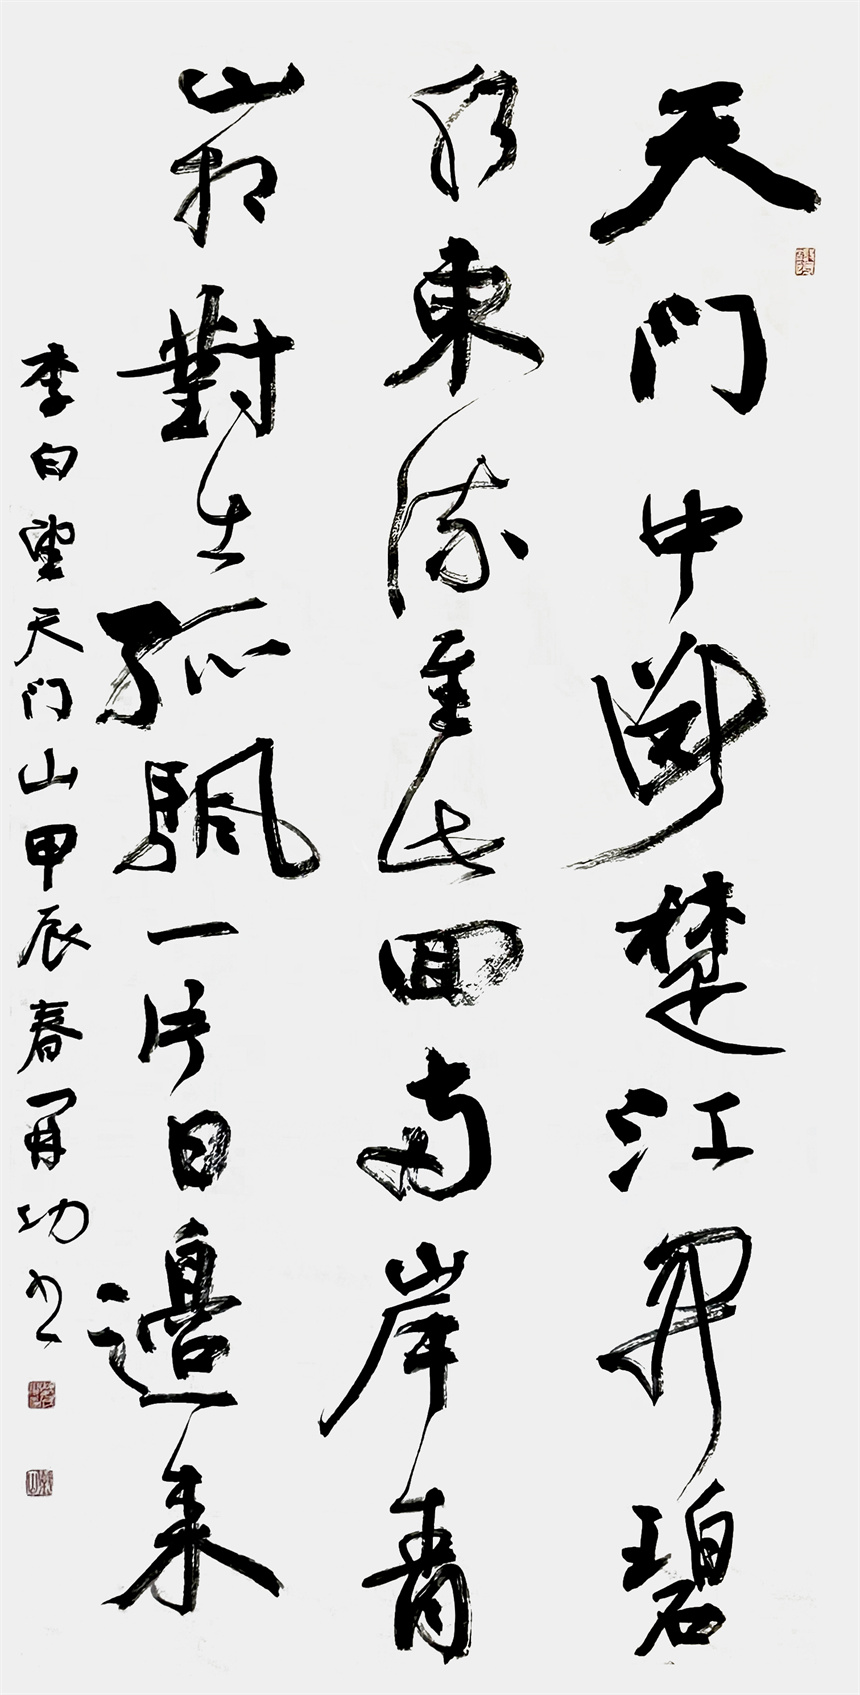 天门中斷楚江開碧
水東流至此回兩岸青
山相對出孤颿一片日邊来
李白望天门山甲辰春功书